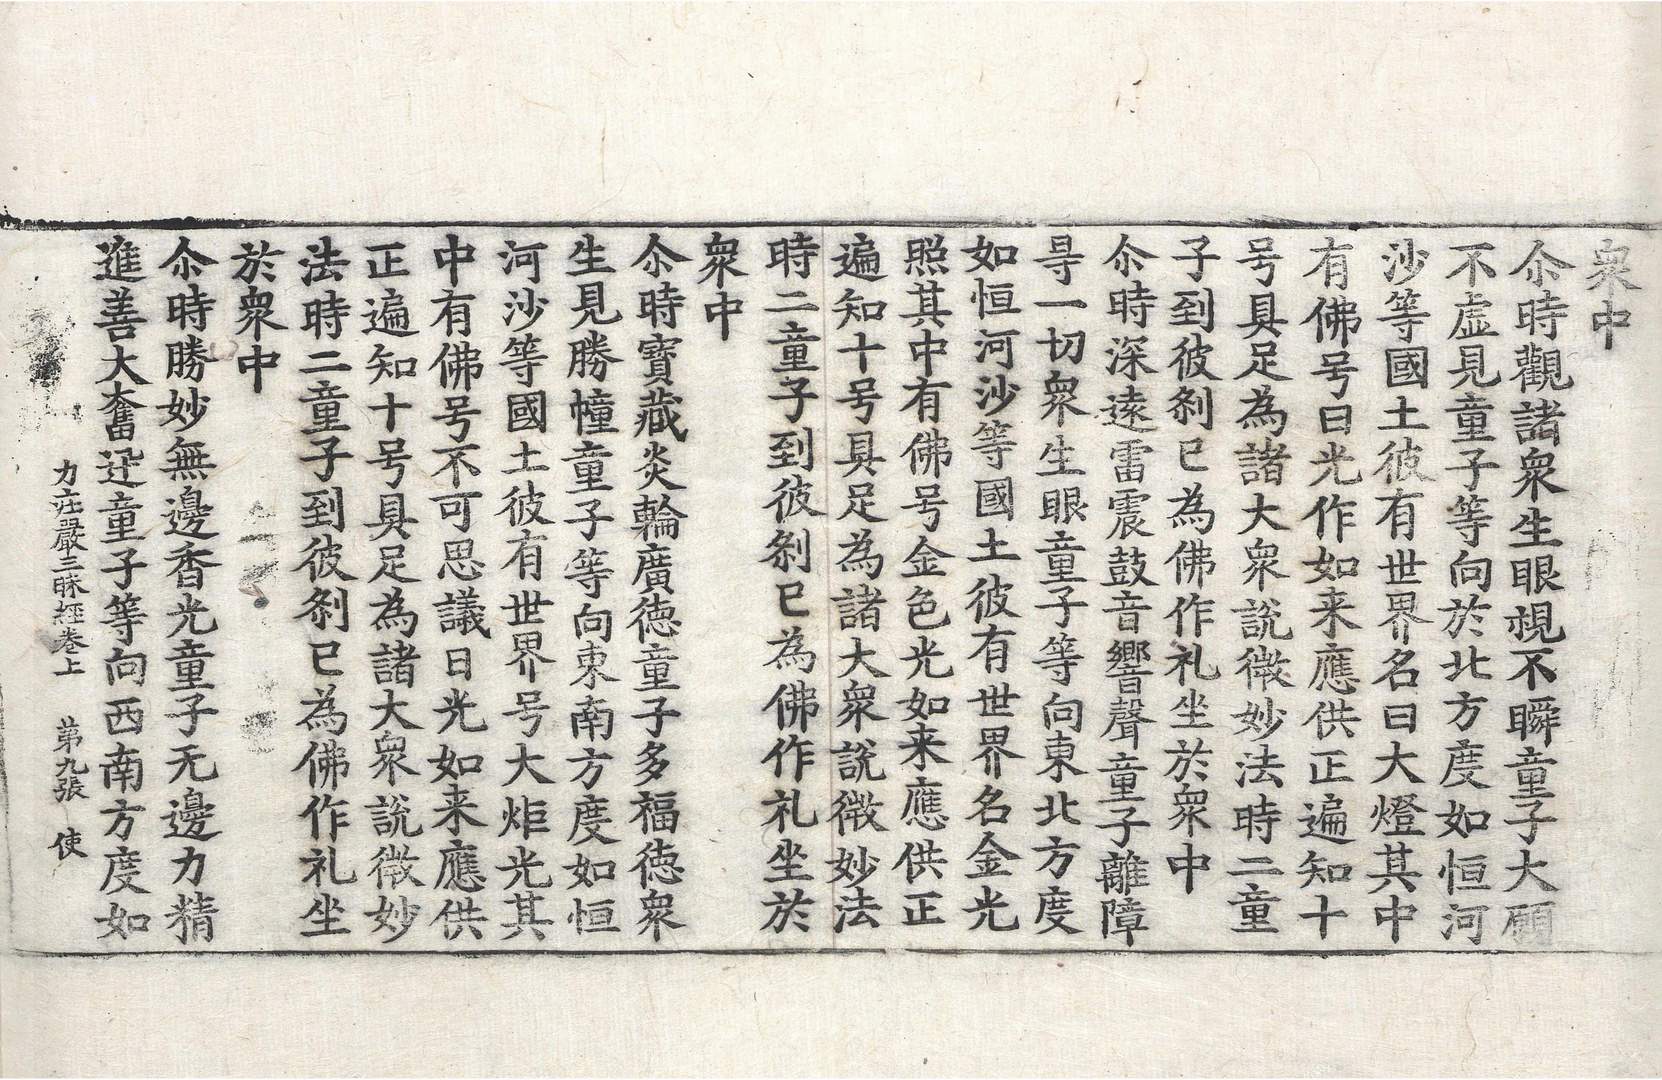 衆中
尒時觀諸衆生眼視不瞬童子大願
不虛見童子等向於北方度如恒河
沙等國土彼有世界名曰大燈其中
有佛号曰光作如来應供正遍知十
号具足為諸大衆說微妙法時二童
子到彼刹已為佛作礼坐於衆中
尒時深遠雷震鼓音響聲童子離障
㝵一切衆生眼童子等向東北方度
如恒河沙等國土彼有世界名金光
照其中有佛号金色光如来應供正
遍知十号具足為諸大衆說微妙法
時二童子到彼刹已為佛作礼坐於
衆中
尒時寶藏炎輪廣德童子多福德衆
生見勝幢童子等向東南方度如恒
河沙等國土彼有世界号大炬光其
中有佛号不可思議日光如来應供
正遍知十号具足為諸大衆說微妙
法時二童子到彼刹已為佛作礼坐
於衆中
尒時勝妙無邊香光童子无邊力精
進善大奮迅童子等向西南方度如
力莊嚴三昧經卷上 第九張 使